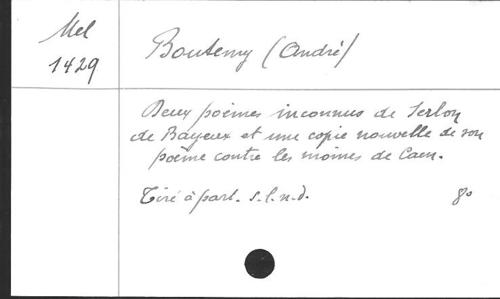 Mel
1429
Boutemy (André)
Deux poèmes inconnus de Serlon
de Bayeux et une copie nouvelle de son
poème contre les moines de Caen.
Tiré à part. s.l.n.d. 8o